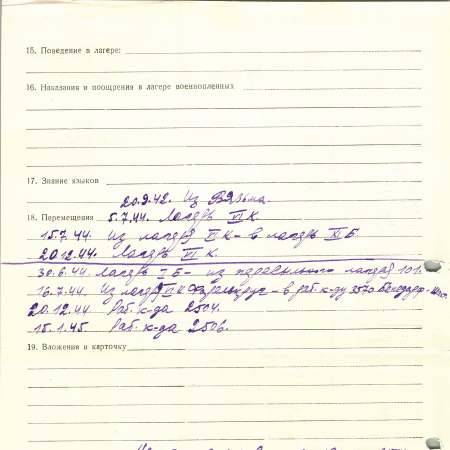 15. Поведение в лагере:
16. Наказания и поощрения в лагере военнопленных
17. Знание языков
20.9.42. Из Вязьма.
18. Перемещения 5.7.44. Лагерь VI К.
15.7.44. Из лагеря VI К - в лагерь XI Б.
20.12.44. Лагерь VI К.
30.6.44. Лагерь I Б - из пересыльного лагеря 101.
16.7.44. Из лагеря VI К - в раб. к-ду 3570
20.12.44 Раб. к-да 2504.
15.1.45. Раб. к-да 2506.
19. Вложения в карточку